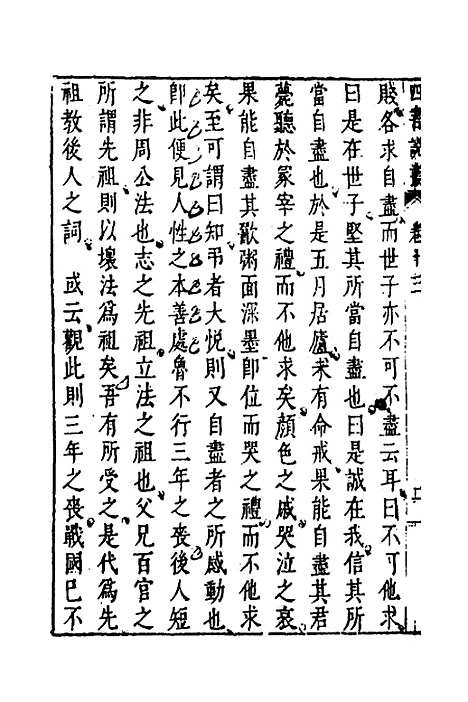 四書說叢 卷十三
殷各求自盡而世子亦不可不盡云耳曰不可他求
曰是在世子堅其所當自盡也曰是誠在我信其所
當自盡也於是五月居廬未有命戒果能自盡其君
薨聽於冢宰之禮而不他求矣顏色之戚哭泣之哀
果能自盡其歠粥面深墨卽位而哭之禮而不他求
矣至可謂曰知弔者大悅則又自盡者之所感動也
卽此便見人性之本善處魯不行三年之喪後人短
之非周公法也志之先祖立法之祖也父兄百官之
所謂先祖則以壞法爲祖矣吾有所受之是代爲先
祖教後人之詞 或云觀此則三年之喪戰國已不